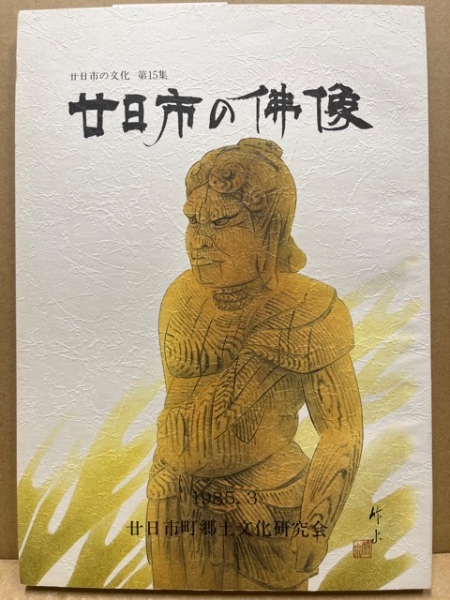 廿日市の文化 第15集
廿日市の佛像
1985.3
廿日市町郷土文化研究会